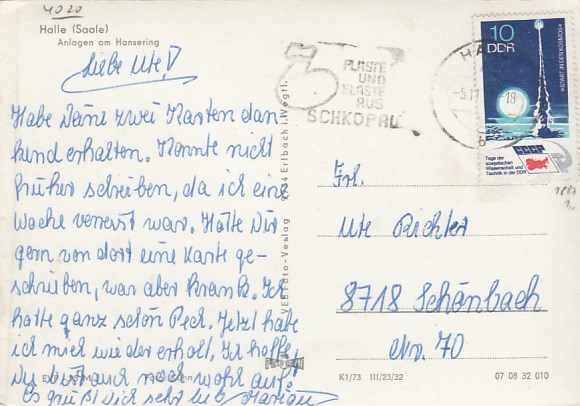 4020
Halle (Saale)
Anlagen am Hansering
Liebe Ute!
Habe Deine zwei Karten dan-
kend erhalten. Konnte nicht
früher schreiben, da ich eine
Woche verreist war. Hätte Dir
gern von dort eine Karte ge-
schrieben, war aber krank. Ich
hatte ganz schön Pech. Jetzt habe
ich mich wieder erholt. Ich hoffe,
Du bist auch noch wohl auf?
Es grüßt Dich sehr lieb
VEB Foto-Verlag Erlbach i. Vogtl.
PLASTE
UND
ELASTE
AUS
SCHKOPAU
HA
-5.12
18
b
10
DDR
»START IN DEN KOSMOS«
Tage der
sowjetischen
Wissenschaft und
Technik in der DDR
Frl.
Ute Richter
8718 Schönbach
Nr. 70
K1/73 III/23/32
07 08 32 010